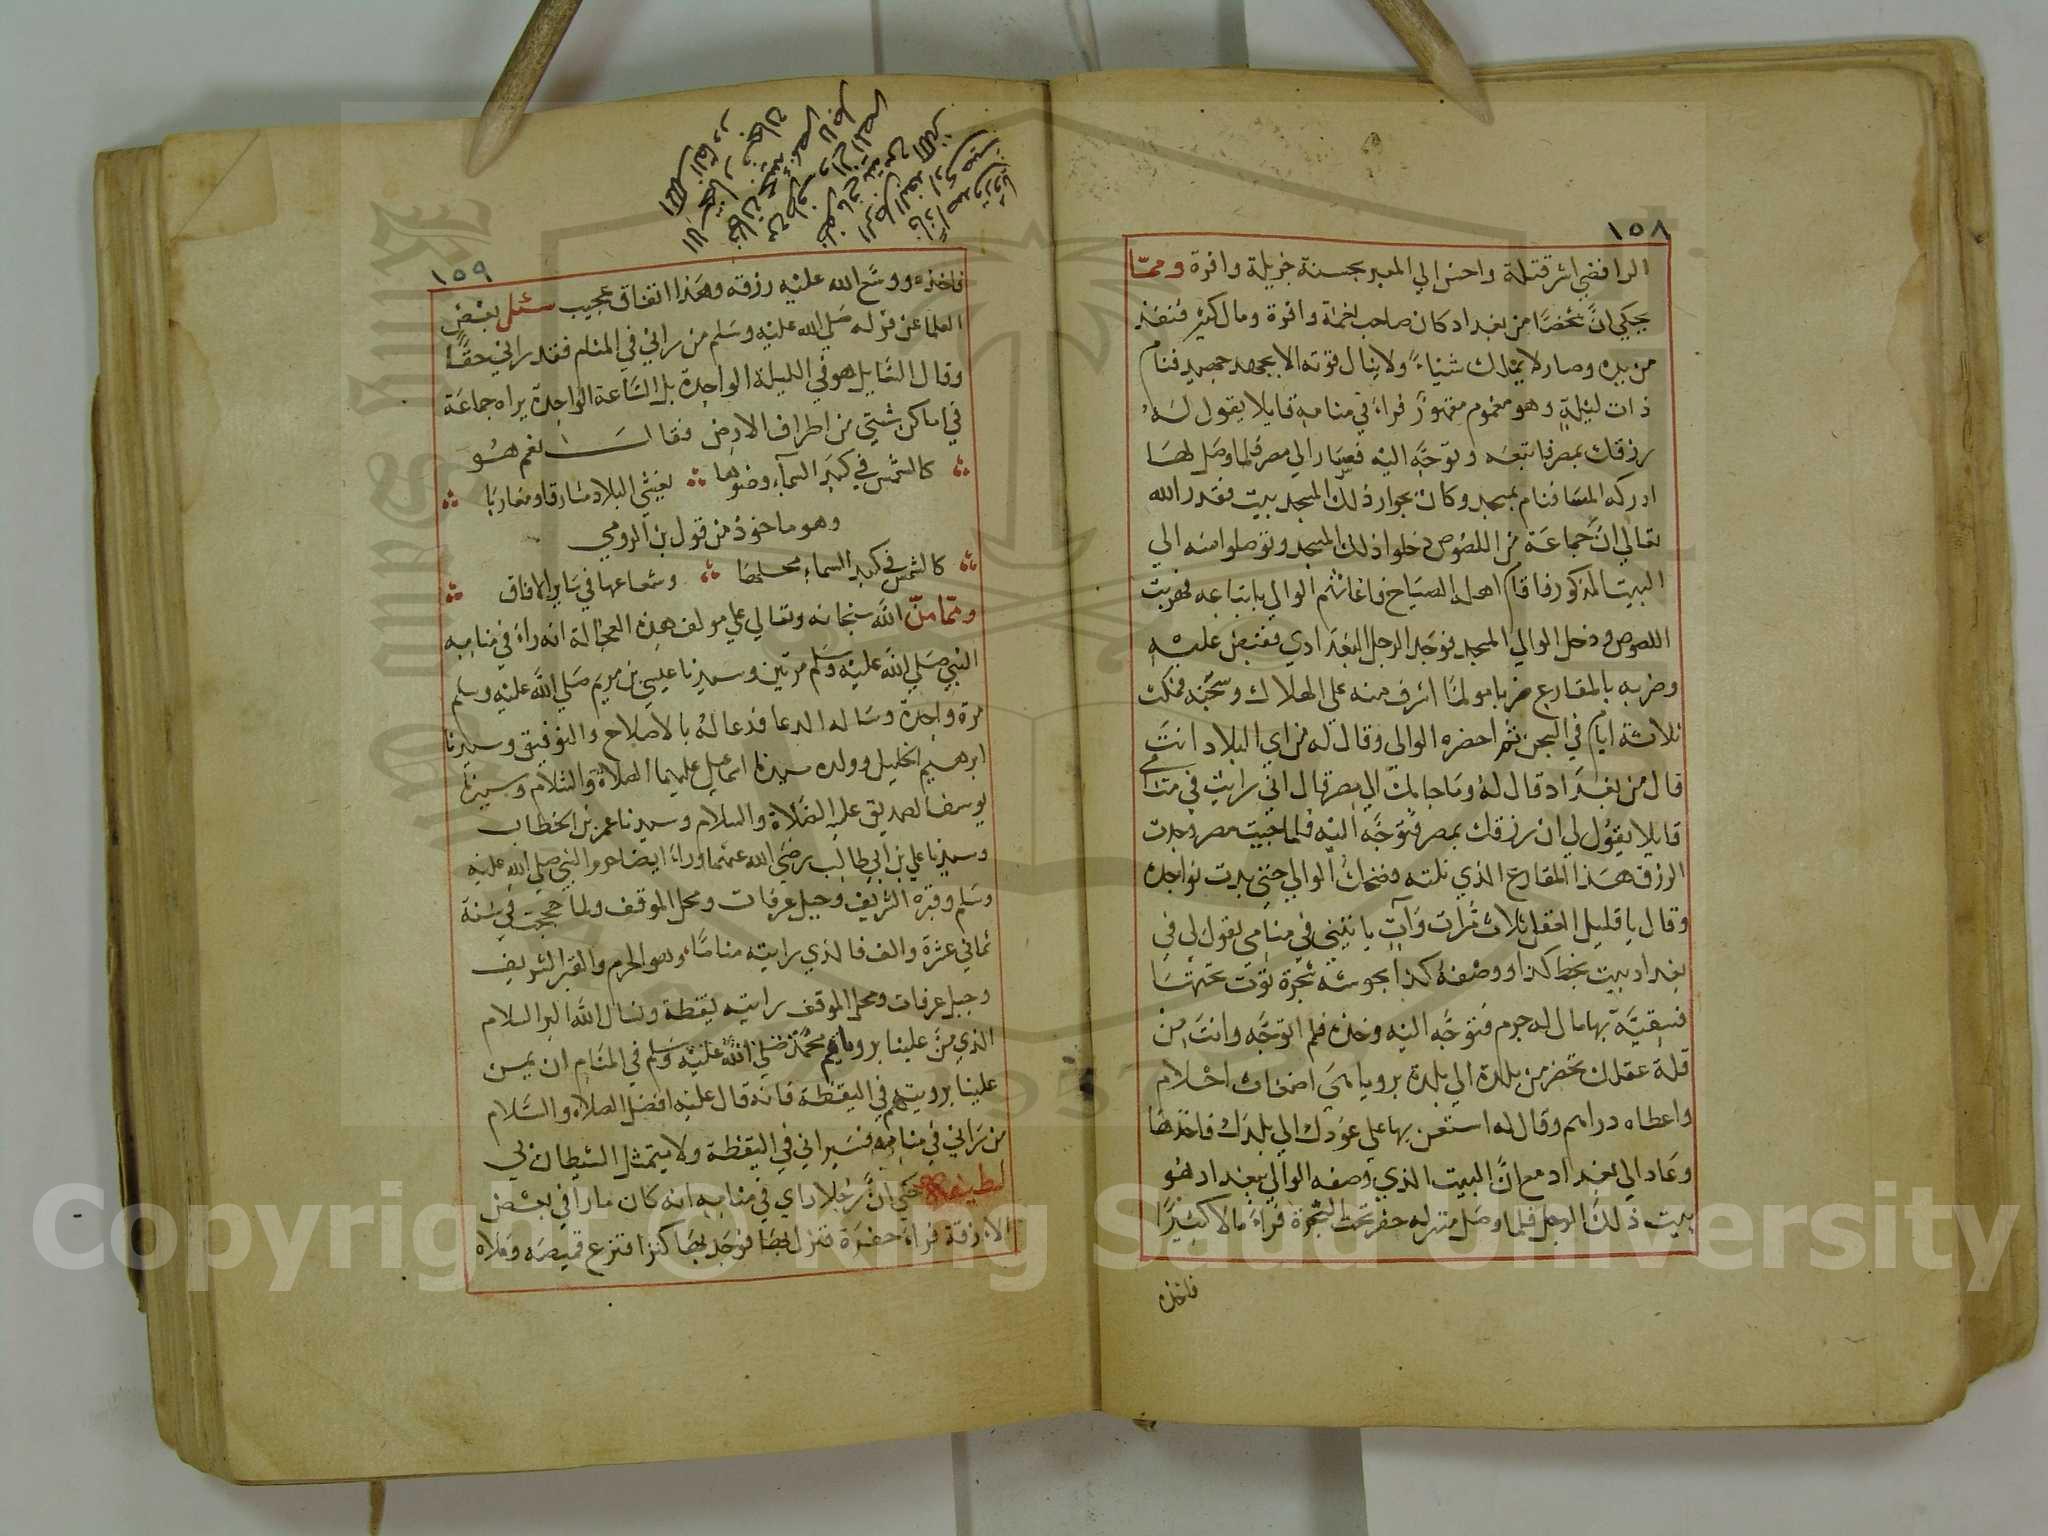 ١٥٨
الرافضي اشر قتلة واحسن الي المعبر بحسنة جزيلة وافرة ومما
يحكي ان شخصا من بغداد كان صاحب نعمة وافرة ومال كثير فنفذ
من يده وصار لا يملك شياء ولا ينال قوته الا بجهد جهيد فنام
ذات ليلة وهو مغموم مقهور فراء في منامه قايلا يقول له
رزقك بمصر فاتبعه وتوجه اليه فسار الي مصر فلما وصل لها
ادركه المسا فنام بمسجد وكان بجوار ذلك المسجد بيت فقدر الله
تعالي ان جماعة من اللصوص دخلوا ذلك المسجد وتوصلوا منه الي
البيت المذكور فاقام اهله الصياح فاغاثهم الوالي باتباعه فهربت
اللصوص ودخل الوالي المسجد فوجد الرجل البغدادي فقبض عليه
وضربه بالمقارع ضربا مولما اشرف منه علي الهلاك وسجنه فمكث
ثلاثة ايام في السجن ثم احضره الوالي وقال له من اي البلاد انت
قال من بغداد قال له وما حاجتك الي مصر قال اني رايت في منامي
قايلا يقول لي ان رزقك بمصر فتوجه اليه فلما جيت مصر وجدت
الرزق هذا المقارع الذي نلته فضحك الوالي حتي بدت نواجده
وقال يا قليل العقل ثلاث مرات وآت ياتيني في منامي يقول لي في
بغداد بيت بخط كذا ووصفه كذا بحوشه شجرة توت تحتها
فسقية بها مال له جرم فتوجه اليه وخذه فلم اتوجه وانت من
قلة عقلك تحضر من بلدة الي بلدة برويا هي اضغاث احلام
واعطاه دراهم وقال له استعن بها علي عودك الي بلدك فاخذها
وعاد الي بغداد مع ان البيت الذي وصفه الوالي ببغداد هو
بيت ذلك الرجل فلما وصل منزله حفر تحت الشجرة فراء مالا كثيرا
فاخذه
١٥٩
فاخذه ووسع الله عليه رزقه وهذا اتفاق عجيب سئل بعض
العلما عن قوله صلي الله عليه وسلم من راني في المنام فقد راني حقا
وقال السايل هو في الليلة الواحدة بل الساعة الواحدة يراه جماعة
في اماكن شتي من اطراف الارض فقال نعم هو
كالشمس في كبد السماء وضوها يغشي البلاد مشارقا ومغاربا
وهو ماخوذ من قول بن الرومي
كالشمس في كبد السماء محلها وشعاعها في ساير الافاق
ومما من الله سبحانه وتعالي علي مولف هذه العجالة انه راء في منامه
النبي صلي الله عليه وسلم مرتين وسيدنا عيسي بن مريم صلي الله عليه وسلم
مرة واحدة وساله الدعا فدعا له بالاصلاح والتوفيق وسيدنا
ابرهيم الخليل وولده سيدنا اسماعيل عليهما الصلاة والسلام وسيدنا
يوسف الصديق عليه الصلاة والسلام وسيدنا عمر بن الخطاب
وسيدنا علي بن ابي طالب رضي الله عنهما وراء ايضا حرم النبي صلي الله عليه
وسلم وقبره الشريف وجبل عرفات ومحل الموقف ولما حججت في سنة
ثماني عشرة والف فالذي رايته مناما وهو الحرم والقبر الشريف
وجبل عرفات ومحل الموقف رايته يقظة ونسال الله البر السلام
الذي من علينا بروياهم محمد صلي الله عليه وسلم في المنام ان يمن
علينا برويتهم في اليقظة فانه قال عليه افضل الصلاة والسلام
من راني في منامه فسيراني في اليقظة ولا يتمثل الشيطان بي
لطيفة حكي ان رجلا راي في منامه انه كان مارا في بعض
الازقة فراء حفرة فنزل بها فوجد بها كنزا فنزع قميصه وملاه
Copyright © King Saud University